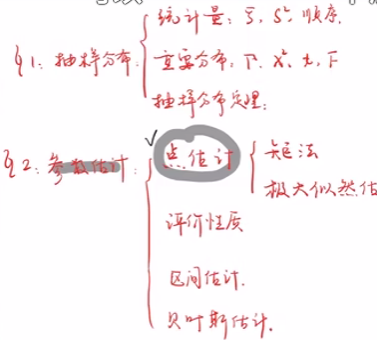 §1：抽样分布
统计量：ξ̄，S²，顺序.
重要分布：Γ. χ² t, F
抽样分布定理：
§2：参数估计：
点估计
矩法
极大似然估
评价性质
区间估计.
贝叶斯估计.